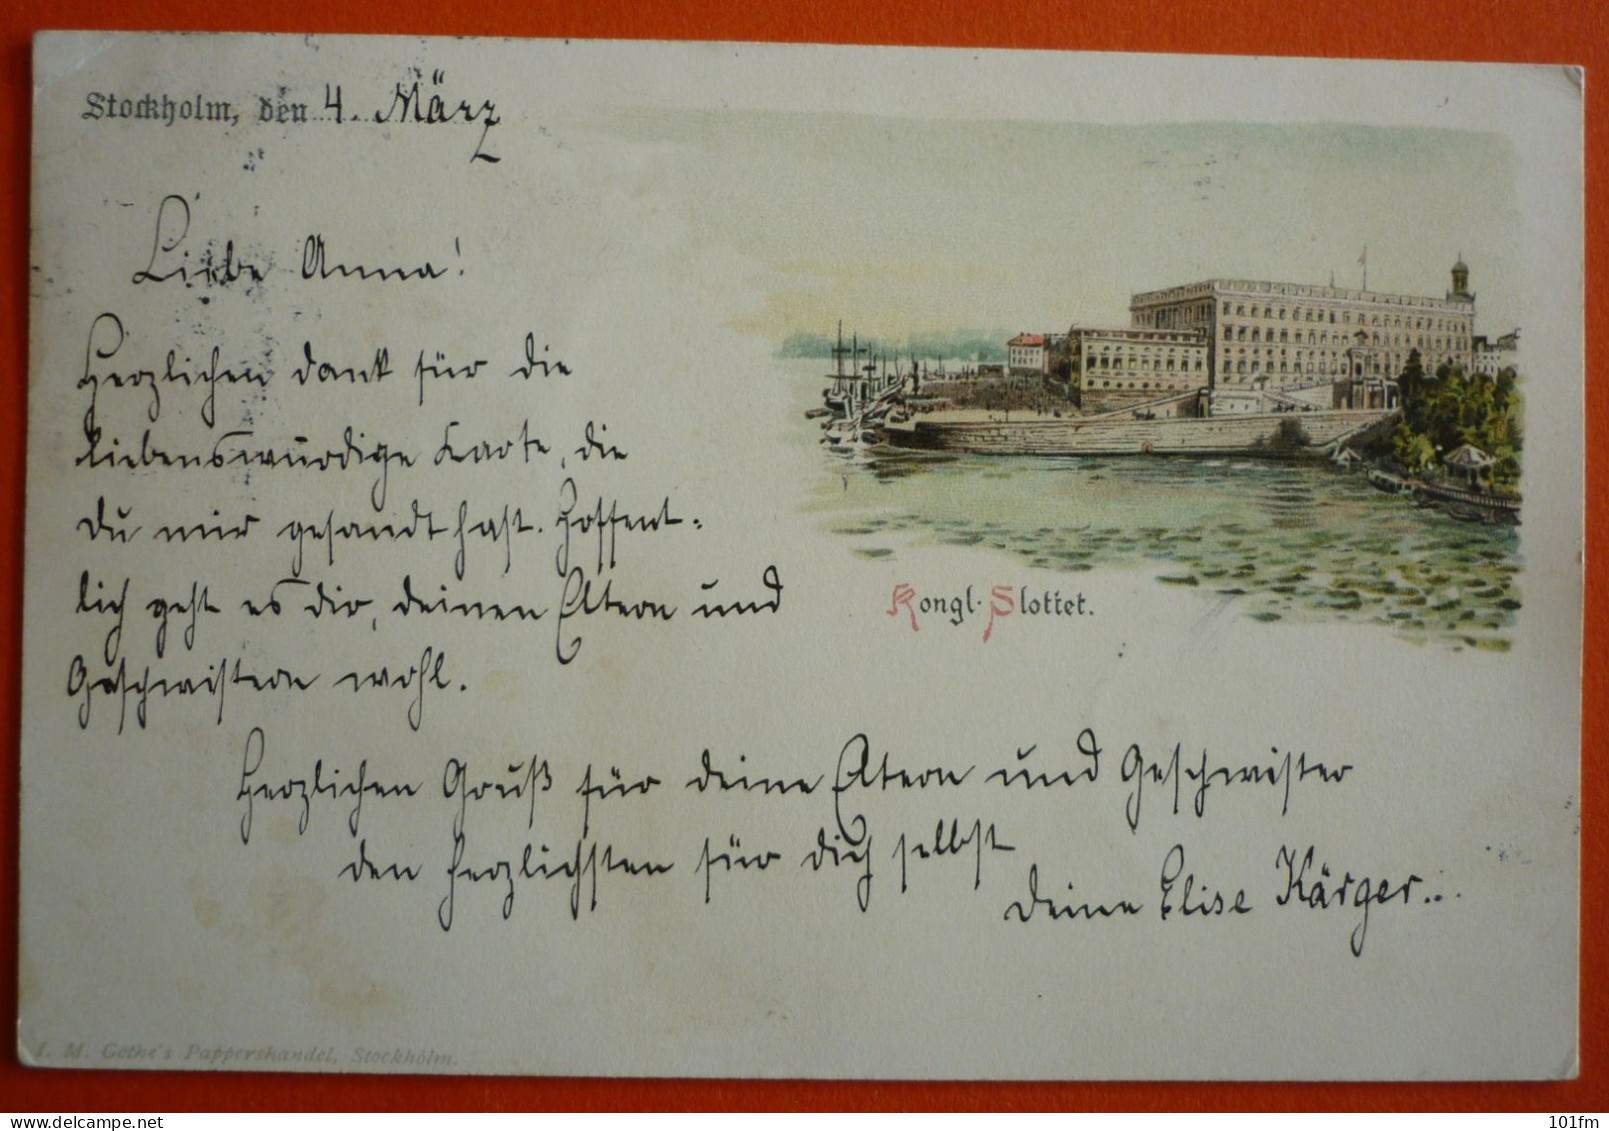 Stockholm, den 4. März
Liebe Anna!
Herzlichen dank für die
liebenswürdige Karte, die
du mir gesandt hast. Hoffent-
lich geht es dir, deinen Eltern und
Geschwistern wohl.
Kongl. Slottet.
Herzlichen Gruß für deine Eltern und Geschwister
den herzlichsten für dich selbst
deine Elise Kärger...
I. M. Göthe's Pappershandel, Stockholm.
www.delcampe.net
101fm